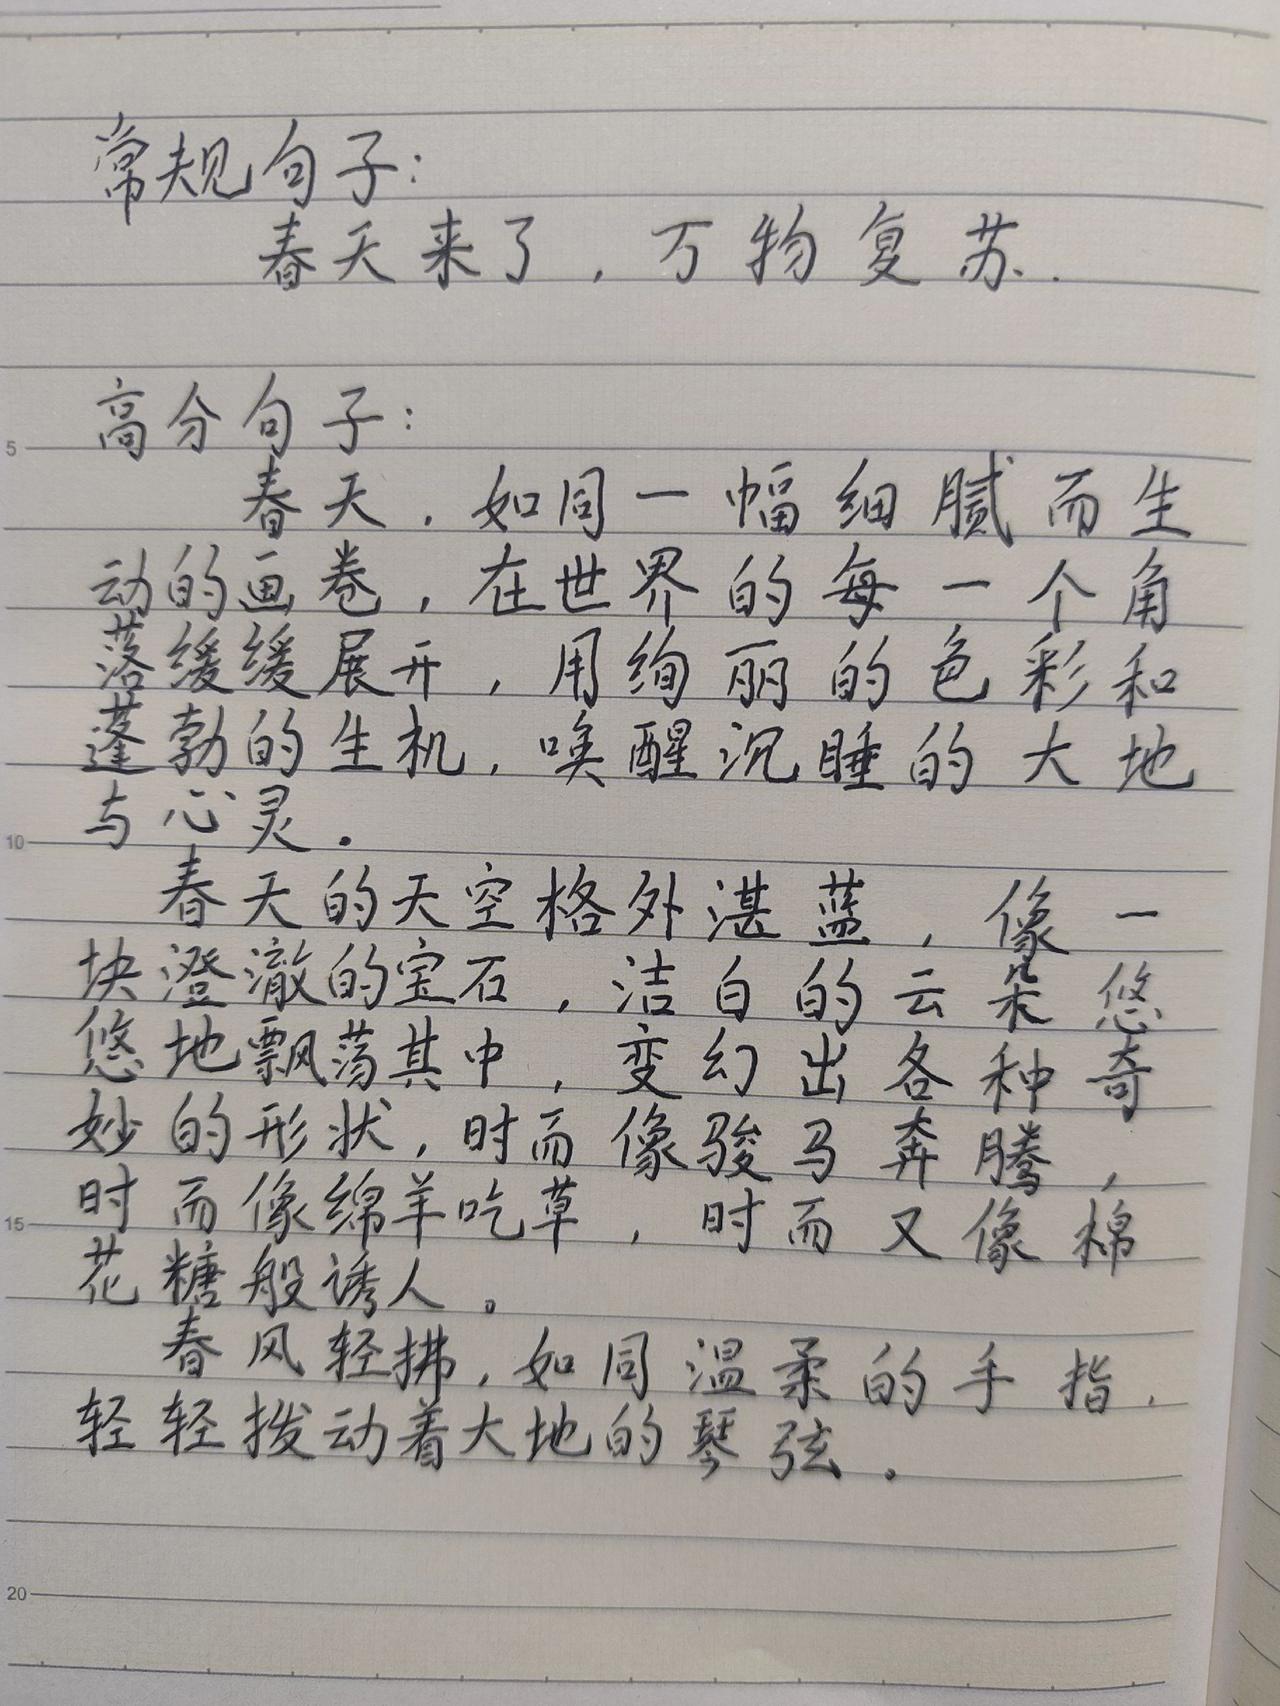 常规句子：
春天来了，万物复苏.
高分句子：
5
春天，如同一幅细腻而生
动的画卷，在世界的每一个角
落缓缓展开，用绚丽的色彩和
蓬勃的生机，唤醒沉睡的大地
与心灵。
10
春天的天空格外湛蓝，像一
块澄澈的宝石，洁白的云朵悠
悠地飘荡其中，变幻出各种奇
妙的形状，时而像骏马奔腾，
时而像绵羊吃草，时而又像棉
15
花糖般诱人。
春风轻拂，如同温柔的手指，
轻轻拨动着大地的琴弦。
20